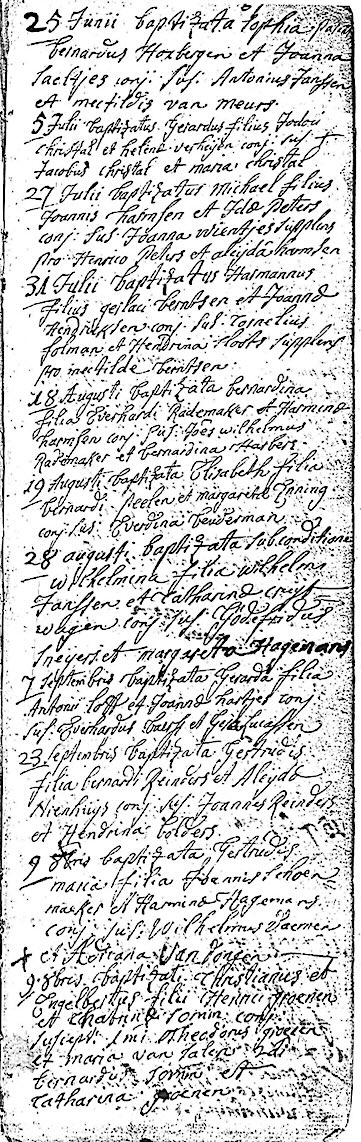 25 Junii baptizata Sophia
bernardus Hoxbergen et Joanna
Saeltjes conj. sus. Antonius Janssen
et mechildis van meurs
5 Julii baptizatus Gerardus filius Jodoci
Christal et helene verheijen conj. sus. +
Jacobus christal et maria christal
27 Julii baptizatus michael filius
Joannis harmsen et Idæ Peters
conj. sus. Joanna wientjes supplens
pro Henrico Peters et aleijda harmsen
31 Julii baptizatus Harmannus
filius geslaci berntsen et Joannæ
Hendriksen conj. sus. Cornelius
folman et Hendrina Sloots supplens
pro mectilde berntsen
18 Augusti baptizata bernardina
filia Everhardi Rademaker et Harminæ
harmsen conj. sus. Joës wilhelmus
Rademaker et bernardina Harbers
19 Augusti baptizata Elisabeth filia
bernardi Peelen et margarethæ Enning
conj. sus. Everdina beuderman
28 augusti baptizata sub conditione
wilhelmina filia wilhelmi
Janssen et Catharinæ
wagen conj. sus. Godefridus
Sneijers et margareta Hagemans
7 septembris baptizata Gerarda filia
Antonii Hoff et Joannæ hartjes conj.
sus. Everhardus et
23 septembris baptizata Gertrudis
filia bernardi Reinders et Aleijdæ
Nienhuijs conj. sus. Joannes Reinders
et Hendrina bolders
9 8bris baptizata Gertrudis
maria filia Joannis Schoen
maeker et Harminæ Hagemans
conj. sus. Wilhelmus Daemen
+ et Adriana van Dongen
9 8bris baptizati Christianus et
Engelbertus filii Henrici Groenen
et Chatrinæ conj.
suscept. 1mi Theodorus groenen
et maria van Galen 2di
bernardus et
Catharina groenen